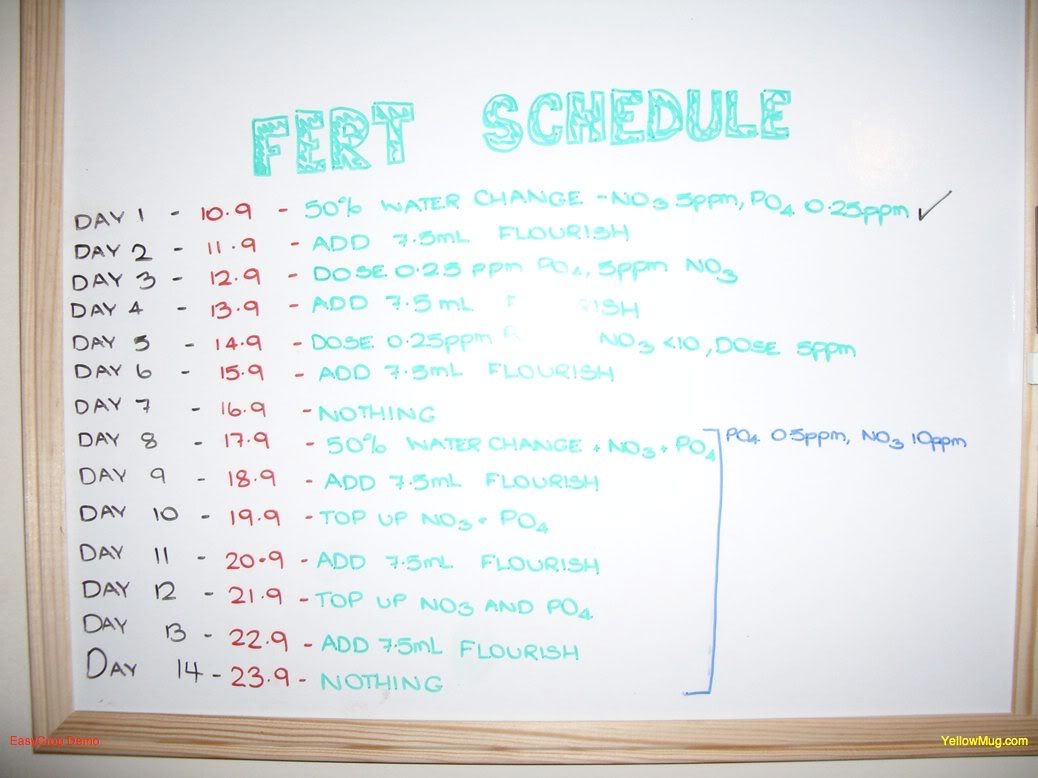 FERT SCHEDULE
DAY 1 - 10.9 - 50% WATER CHANGE - NO3 5ppm, PO4 0.25ppm ✓
DAY 2 - 11.9 - ADD 7.5mL FLOURISH
DAY 3 - 12.9 - DOSE 0.25 ppm PO4, 5ppm NO3
DAY 4 - 13.9 - ADD 7.5mL
DAY 5 - 14.9 - DOSE 0.25ppm NO3 <10, DOSE 5ppm
DAY 6 - 15.9 - ADD 7.5mL FLOURISH
DAY 7 - 16.9 - NOTHING
DAY 8 - 17.9 - 50% WATER CHANGE + NO3 + PO4 PO4 0.5ppm, NO3 10ppm
DAY 9 - 18.9 - ADD 7.5mL FLOURISH
DAY 10 - 19.9 - TOP UP NO3 + PO4
DAY 11 - 20.9 - ADD 7.5mL FLOURISH
DAY 12 - 21.9 - TOP UP NO3 AND PO4
DAY 13 - 22.9 - ADD 7.5mL FLOURISH
DAY 14 - 23.9 - NOTHING
EasyCrop Demo
YellowMug.com